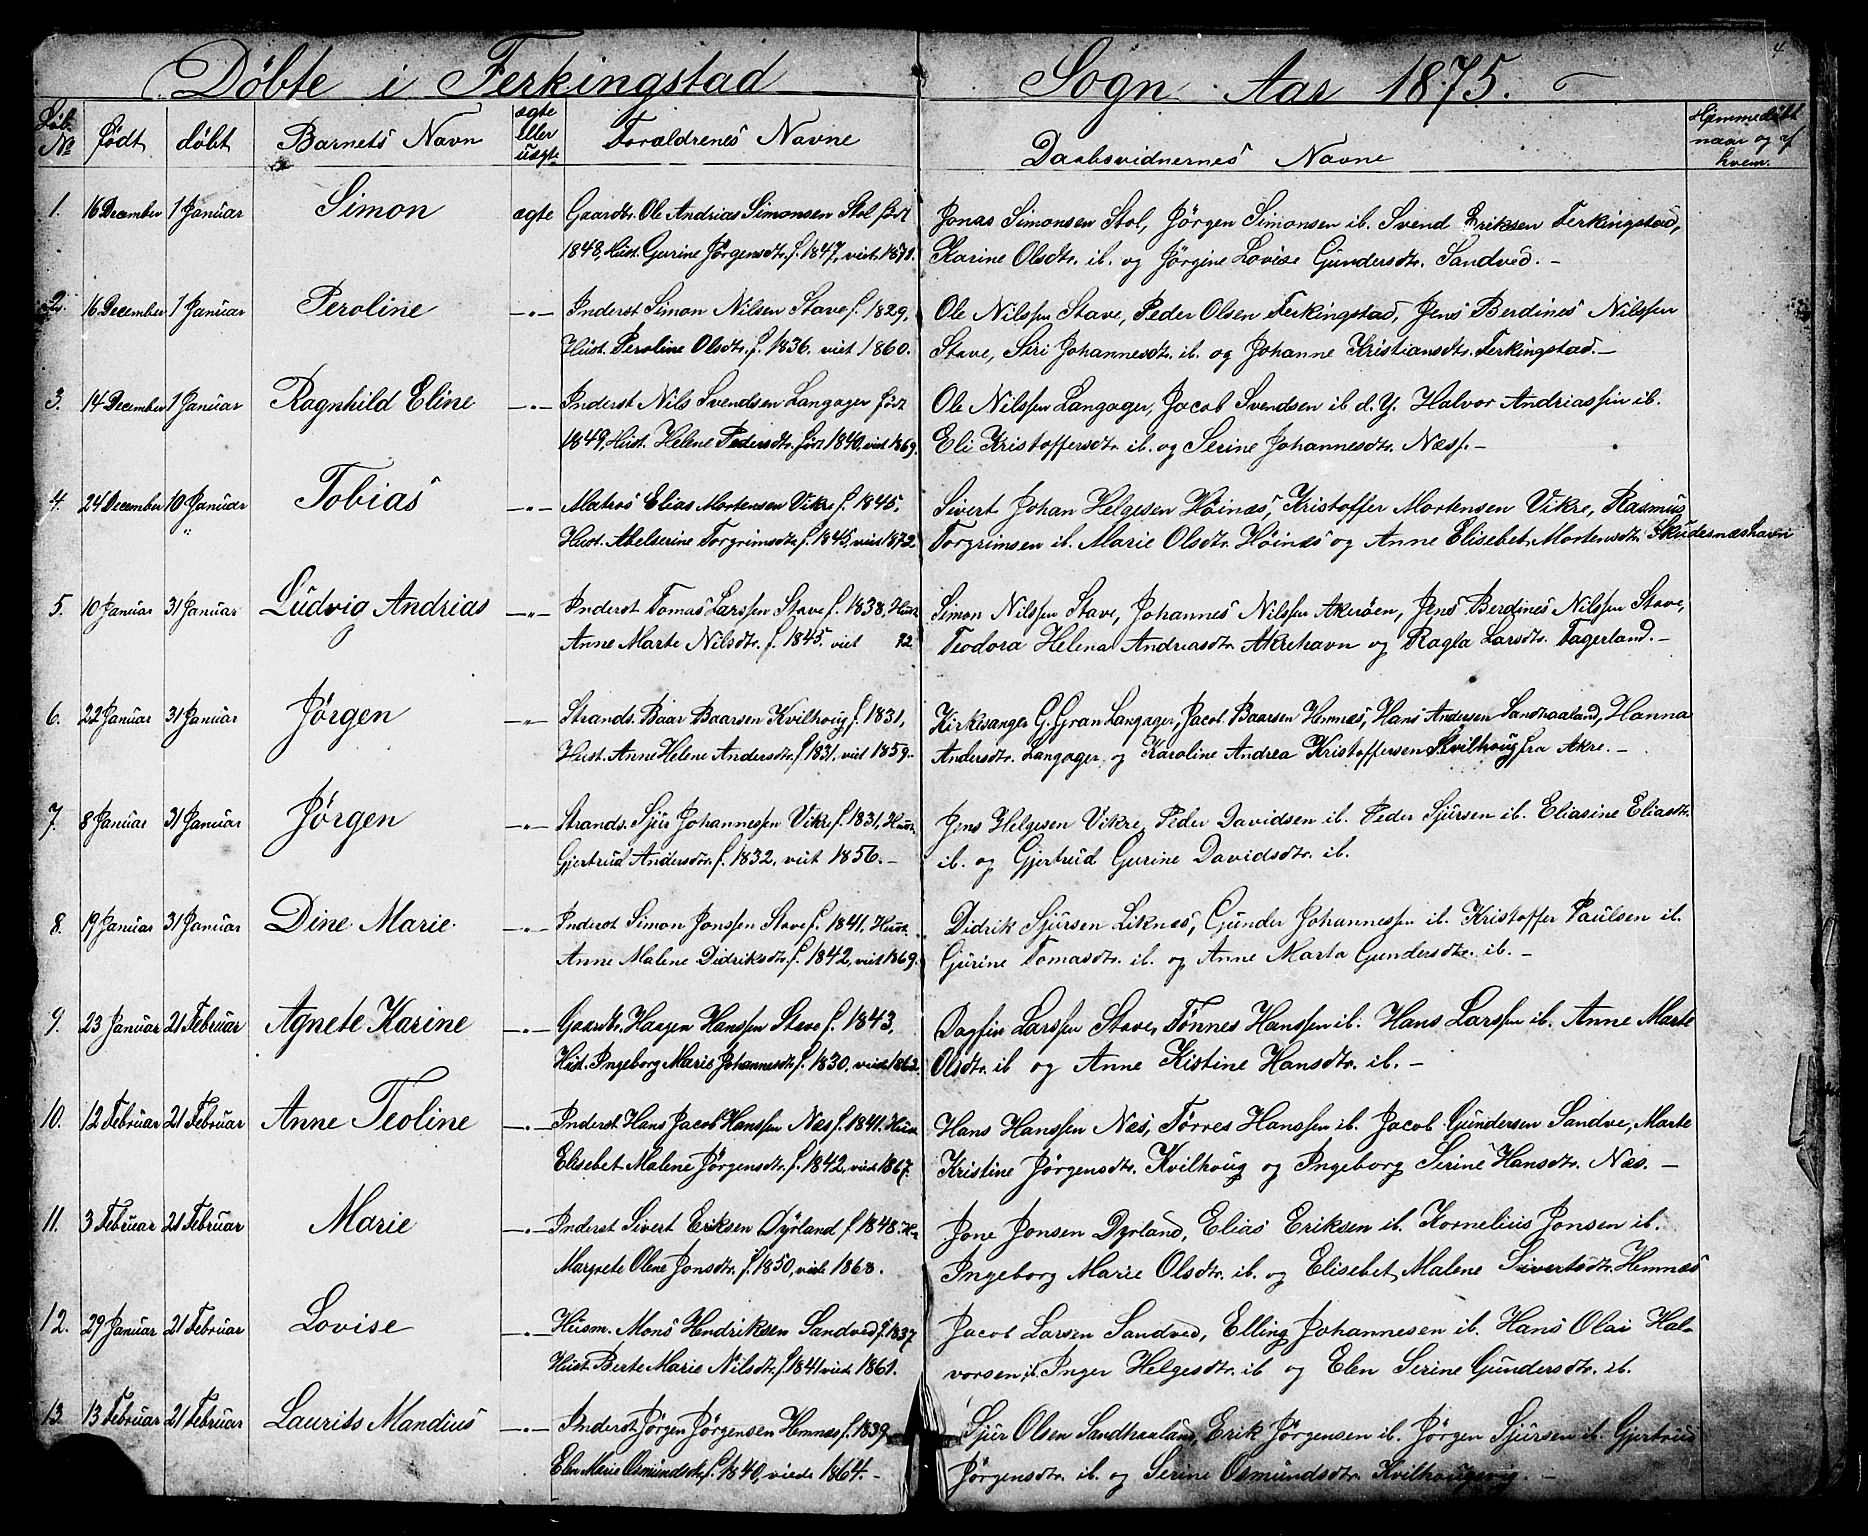 4.
Döbte i Ferkingstad Sogn Aar 1875.
Löb. No födt döbt Barnets Navn ægte eller uægte Forældrenes Navne Daabsvidnernes Navne Hjemmedöbt naar og af hvem.
1. 16 December 1 Januar Simon ægte Gaardbr. Ole Andrias Simonsen Stol født Jonas Simonsen Stol, Jörgen Simonsen ib. Svend Eriksen Ferkingstad,
1848, Hust. Gurine Jörgensdtr. f. 1847, viet 1871. Karine Olsdtr. ib. og Jörgine Lovise Gundersdtr. Sandved. -
2. 16 December 1 Januar Peroline -"- Inderst Simon Nilsen Stave f. 1829, Ole Nilssen Stave, Peder Olsen Ferkingstad, Jens Berdines Nilssen
Hust. Peroline Olsdtr. f. 1836. viet 1860. Stave, Siri Johannesdtr. ib. og Johanne Kristiansdtr. Ferkingstad. -
3. 14 December 1 Januar Ragnhild Eline -"- Inderst Nils Svendsen Langager født Ole Nilssen Langager, Jacob Svendsen ib d. Y. Halvor Andriassen ib.
1849, Hust. Helene Pedersdtr. født 1840, viet 1869. Eli Kristoffersdtr. ib. og Serine Johannesdtr. Næss. -
4. 24 December 10 Januar Tobias -"- Matros Elias Mortensen Vikre f. 1845, Sivert Johan Helgesen Höinæs, Kristoffer Mortensen Vikre, Rasmus
" Hust. Abelserine Torgrimsdtr. f. 1845, viet 1872. Torgrimsen ib. Marie Olsdtr. Höinæs og Anne Elisebet Mortensdtr. Skudesnæshavn
5. 10 Januar 31 Januar Ludvig Andrias -"- Inderst Tomas Larssen Stave f. 1838, Hust. Simon Nilssen Stave, Johannes Nilssen Akröen, Jens Berdines Nilssen Stave,
Anne Marte Nilsdtr. f. 1845. viet 72. Teodora Helena Andreasdtr. Akrehavn og Ragla Larsdtr. Fagerland. -
6. 22 Januar 31 Januar Jörgen -"- Strands. Baar Baarsen Kvilhoug f. 1831, Kirkesanger G. Gran Langager, Jacob Baarsen Hemnæs, Hans Andersen Sandhaaland, Hanna
Hust. Anne Helene Andersdtr. f. 1831, viet 1859. - Andersdtr. Langager og Karoline Andrea Kristoffersen Kvilhoug fra Akre. -
7. 8 Januar 31 Januar Jörgen -"- Strands. Sjur Johannessen Vikre f. 1831, Hust. Jens Helgesen Vikre, Peder Davidsen ib. Peder Sjursen ib. Eliasine Eliasdtr.
Gjertrud Andersdtr. f. 1832, viet 1856. - ib. og Gjertrud Gurine Davidsdtr. ib.
8. 19 Januar 31 Januar Dine Marie -"- Inderst Simon Jonssen Stave f. 1841, Hust. Didrik Sjursen Liknæs, Gunder Johannessen ib. Kristoffer Paulsen ib.
Anne Malene Didriksdtr. f. 1842, viet 1869. Gjurine Tomasdtr. ib. og Anne Marta Gundersdtr. ib. -
9. 23 Januar 21 Februar Agnete Karine -"- Gaardbr. Haagen Hanssen Stave f. 1843, Dagfin Larssen Stave, Tönnes Hanssen ib. Hans Larssen ib. Anne Marte
Hust. Ingeborg Marie Johannesdtr. f. 1830, viet 1862. Olsdtr. ib og Anne Kistine Hansdtr. ib. -
10. 12 Februar 21 Februar Anne Teoline -"- Inderst. Hans Jacob Hanssen Næs f. 1841. Hust. Hans Hanssen Næs, Törres Hanssen ib. Jacob Gundersen Sandve, Marte
Elisebet Malene Jörgensdtr. f. 1842, viet 1867. Kristine Jörgensdtr. Kvilhoug og Ingeborg Serine Hansdtr. Næs. -
11. 3 Februar 21 Februar Marie -"- Inderst Sivert Eriksen Dyrland f. 1848. H. Jone Jonsen Dyrland, Elias Eriksen ib. Kornelius Jonsen ib.
Margrete Olene Jonsdtr. f. 1850, viet 1868. Ingeborg Marie Olsdtr. ib. og Elisebet Malene Sivertsdtr. Hemnæs
12. 29 Januar 21 Februar Lovise -"- Husm. Mons Hendriksen Sandved f. 1837 Jacob Larsen Sandved, Elling Johannesen ib. Hans Olai Hal-
Hust. Berte Marie Nilsdtr. f. 1841 viet 1861. vorsen ib. Inger Helgesdtr. ib og Elen Serine Gundersdtr. ib.
13. 13 Februar 21 Februar Laurits Mandius -"- Inderst Jörgen Jörgensen Hemnæs f. 1839 Sjur Olsen Sandhaaland, Erik Jörgensen ib. Jörgen Sjursen ib. Gjertrud
Elen Marie Osmundsdtr. f. 1840, viede 1864. - Jörgensdtr. ib. og Serine Osmundsdtr. Kvilhougvig. -